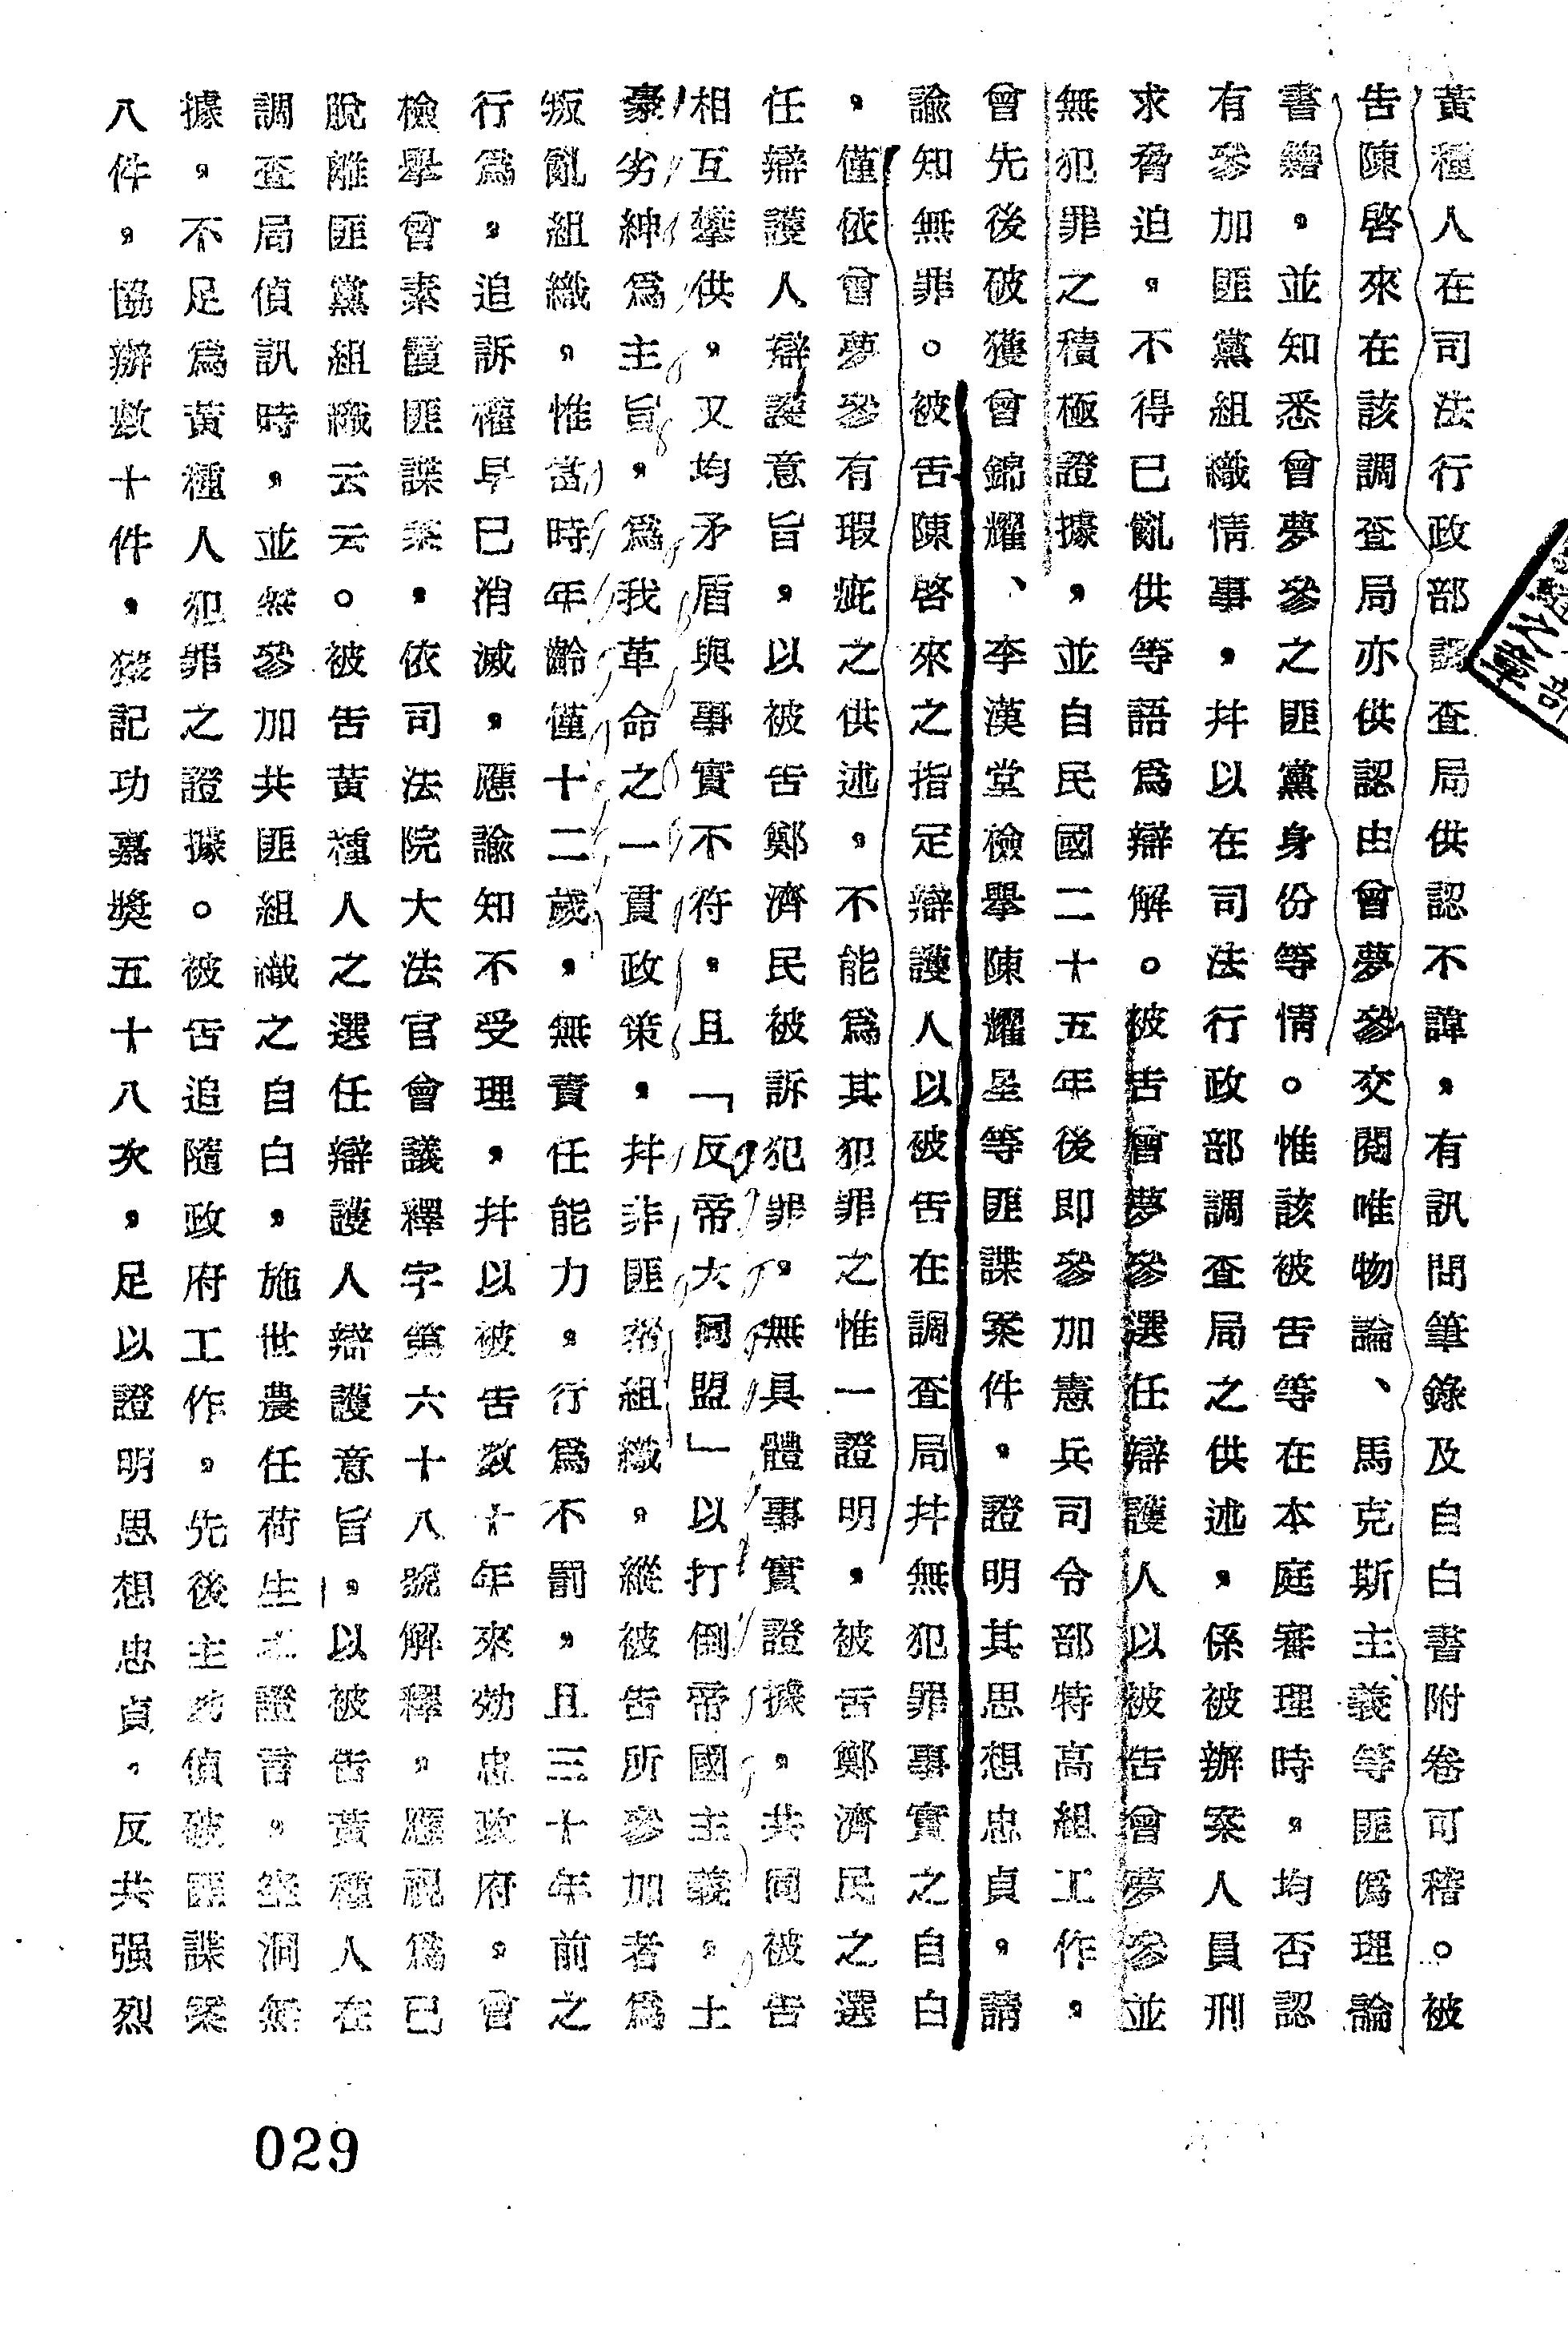 黃種人在司法行政部調查局供認不諱，有訊問筆錄及自白書附卷可稽。被
告陳啓來在該調查局亦供認由曾夢參交閱唯物論、馬克斯主義等匪僞理論
書籍，並知悉曾夢參之匪黨身份等情。惟該被告等在本庭審理時，均否認
有參加匪黨組織情事，幷以在司法行政部調查局之供述，係被辦案人員刑
求脅迫，不得已亂供等語爲辯解。被告曾夢參選任辯護人以被告曾夢參並
無犯罪之積極證據，並自民國二十五年後即參加憲兵司令部特高組工作，
曾先後破獲曾錦耀、李漢堂檢舉陳耀星等匪諜案件，證明其思想忠貞，請
諭知無罪。被告陳啓來之指定辯護人以被告在調查局幷無犯罪事實之自白
，僅依曾夢參有瑕疵之供述，不能爲其犯罪之惟一證明，被告鄭濟民之選
任辯護人辯護意旨，以被告鄭濟民被訴犯罪，無具體事實證據，共同被告
相互攀供，又均矛盾與事實不符，且「反帝大同盟」以打倒帝國主義，土
豪劣紳爲主旨，爲我革命之一貫政策，幷非匪幫組織，縱被告所參加者爲
叛亂組織，惟當時年齡僅十二歲，無責任能力，行爲不罰，且三十年前之
行爲，追訴權早已消滅，應諭知不受理，幷以被告數十年來効忠政府，曾
檢舉曾素霞匪諜案，依司法院大法官會議釋字第六十八號解釋，應視爲已
脫離匪黨組織云云。被告黃種人之選任辯護人辯護意旨，以被告黃種人在
調查局偵訊時，並無參加共匪組織之自白，施世農任荷生之證言，空洞無
據，不足爲黃種人犯罪之證據。被告追隨政府工作，先後主功偵破匪諜案
八件，協辦數十件，獲記功嘉獎五十八次，足以證明思想忠貞，反共强烈
029